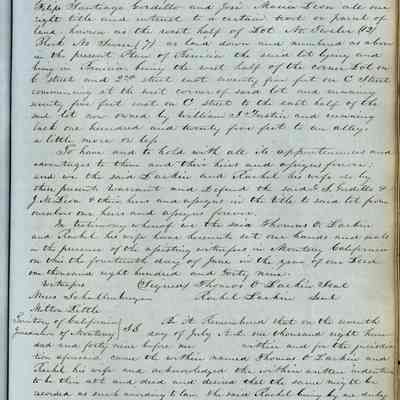 Felipe Santiago Gordillo and José Maria Leon all our
right title and interest to a certain tract or parcel of
land known as the west half of Lot No Twelve (12)
Block No Seven (7) as laid down and numbered as above
in the present Plan of Benicia the said lot lying and
being in Benicia being the west half of the corner Lot on
C street and 2nd street east twenty five feet on C Street
commencing at the west corner of said lot and running
twenty five feet east on C Street to the east half of the
said lot now owned by William and running
back one hundred and twenty five feet to an alley
a little more or less
To have and to hold with all its appurtenances and
advantages to them and their heirs and assigns forever
and we the said Larkin and Rachel his wife do by
these present Warrant and Defend the said S. Gordillo &
J. M. Leon & their heirs and assigns in the title to said lot from
ourselves our heirs and assigns forever.
In testimony whereof we the said Thomas O Larkin
and Rachel his wife have hereunto set our hands and seals
in the presence of the attesting witnesses in Monterey California
on this the fourteenth day of June in the year of our Lord
one thousand eight hundred and forty nine.
Witness Signed Thomas O Larkin Seal
Rachel Larkin Seal
Milton Little
Territory of California
Jurisdiction of Monterey SS Be it Remembered that on the
day of July A.D. one thousand eight hun
dred and forty nine before me within and for the jurisdic
tion aforesaid came the within named Thomas O Larkin and
Rachel his wife and acknowledged the within written indenture
to be their act and deed and desired that the same might be
recorded as such according to law the said Rachel being by me duly